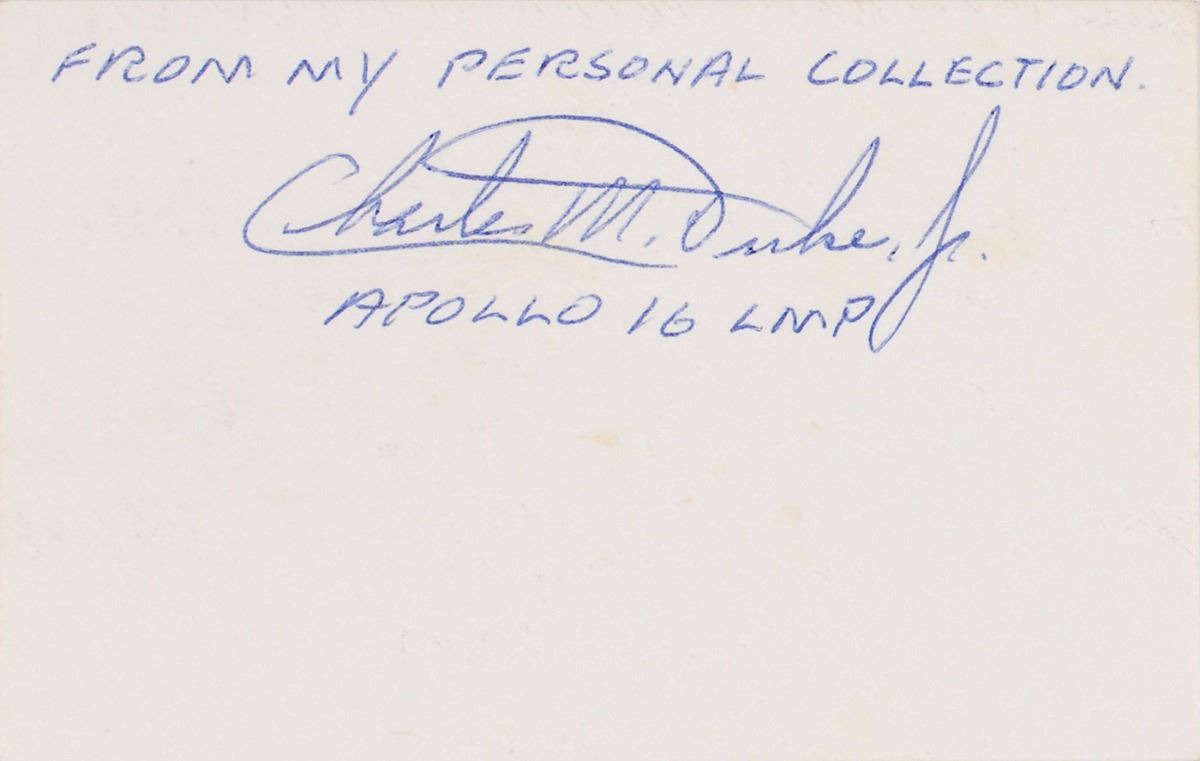 FROM MY PERSONAL COLLECTION.
Charles M. Duke, Jr.
APOLLO 16 LMP